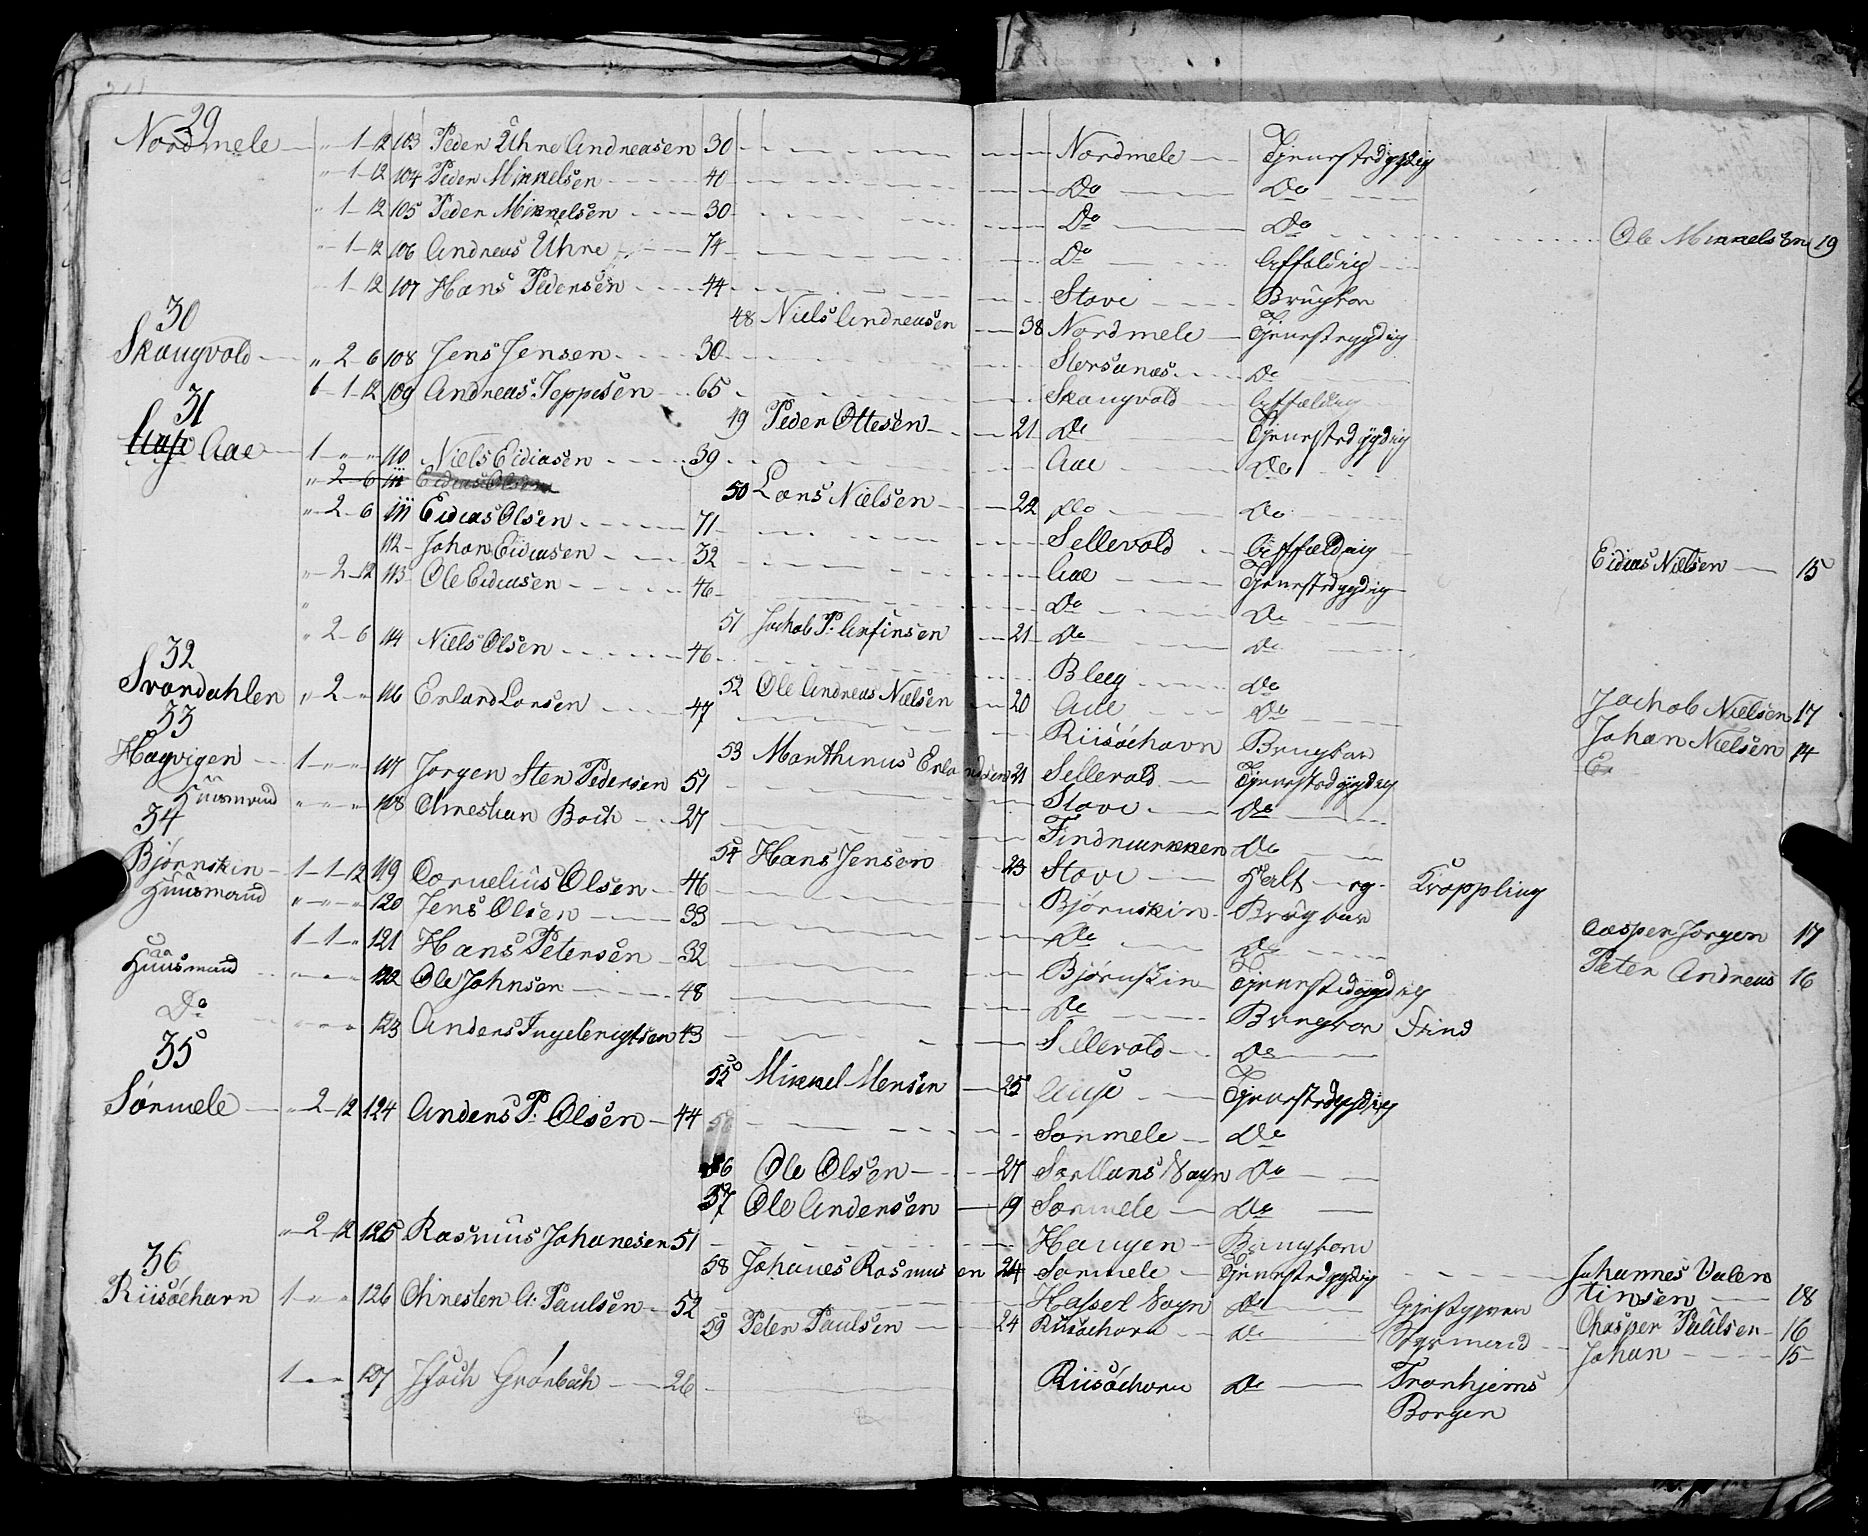 29
Nordmele „ 1-12 103 Peder Uhre Andreasen 30 Nordmele Tjenestdygdig
„ 1-12 104 Peder Mikkelsen 40 Do Do
„ 1-12 105 Peder Mikkelsen 30 Do Do Ole Mikkelsen 19
„ 1-12 106 Andreas Uhre 74 Do Affældig
1-12 107 Hans Pedersen 44 Stave Brugbar
48 Niels Andreasen 38 Nordmele Tjenestdygdig
30
Skaugvold „ 2-6 108 Jens Jensen 30 Storsanæs Do
1-1-12 109 Andreas Jeppesen 65 Skaugvold Affældig
49 Peder Ottesen 21 Do Tjenestdygdig
31
Aase Aae 1 „ „ 110 Niels Eidiasen 39 Aae Do
„ 2 6 111 Eidias Olsen
50 Lars Nielsen 22 Do Do
„ 2-6 111 Eidias Olsen 71 Sellevold Affældig
112 Johan Eidiasen 32 Aae Tjenestdygdig Eidias Nielsen 15
„ 2-12 113 Ole Eidiasen 46 Do Do
51 Jachob P. Arfinsen 21 Do Do
„ 2-6 114 Niels Olsen 46 Bleg Do
52 Ole Andreas Nielsen 20 Aae Do Jachob Nielsen 17
32
Svardahlen „ 2 „ 116 Erlard Larsen 47 Riisöehavn Brugbar Johan Nielsen 14
53 Marthinus Erlandsen 21 Sellevold Tjenestdygdig E
33
Haqvigen 1 „ „ 117 Jorgen Sten Pedersen 51 Stave Do
Huusmand „ „ „ 118 Christian Boch 27 Findmarkken Do
54 Hans Jensen 23 Stave Halt og Kröppling
34
Björnskin 1-1-12 119 Cornelius Olsen 46 Björnskin Brugbar
Huusmand „ „ „ 120 Jens Olsen 33 Do Do Casper Jorgen 17
1-1-„ 121 Hans Petersen 32 Björnskin Tjenestdygdig Peter Andreas 16
Huusmand „ „ „ 122 Ole Johnsen 48 Do Brugbar Frind
Do „ „ „ 123 Anders Ingebrigtsen 43 Sellevold Do
55 Mikkel Mensen 25 Aase Tjenestdygdig
35
Sörmele „ 2-12 124 Anders P. Olsen 44 Sörmele Do
56 Ole Olsen 27 Do
57 Ole Andersen 19 Sörmele Do
„ 2-12 125 Rasmus Johanesen 51 Haugen Brugbar
58 Johanes Rasmusen 24 Sörmele Tjenestdygdig Johannes Valen
36
Riisöehavn 1 „ „ 126 Christen A. Paulsen 52 Hassel Sogn Do Gjestgiver tinsen 18
59 Peter Paulsen 24 Riisöehavn Do Chasper Paulsen 16
Johan 15
1 „ „ 127 Isach Grönbech 26 Riisöehavn Do Tronhjems
Borger